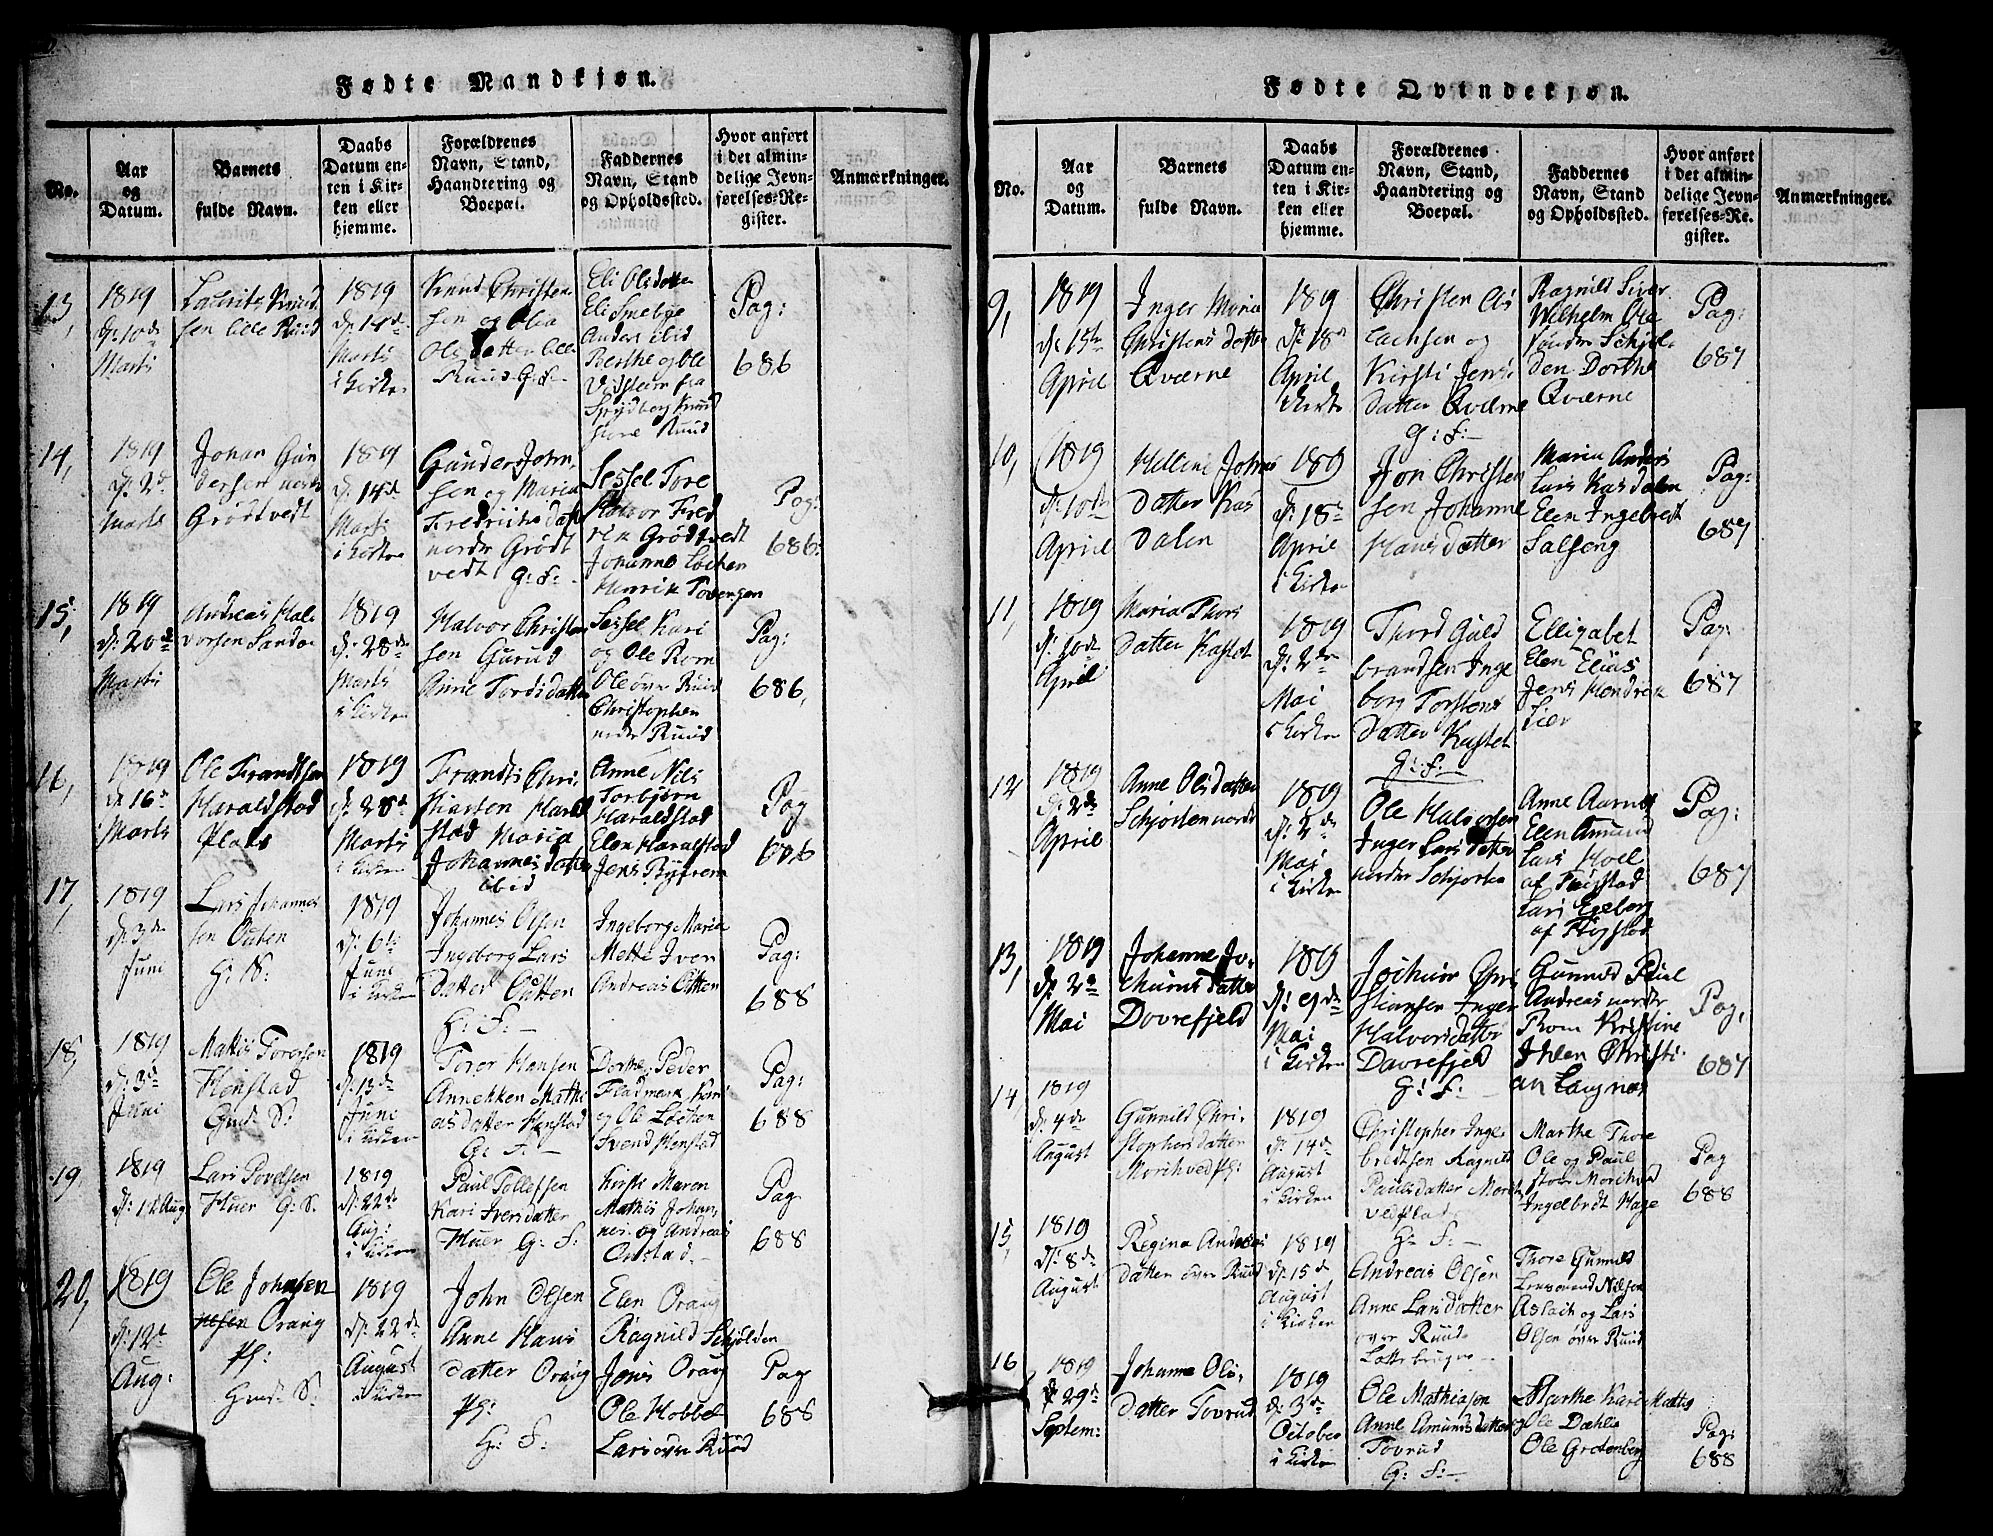 Fødte Mandkjøn.
No.
Aar
og
Datum.
Barnets
fulde Navn.
Daabs
Datum en-
ten i Kir-
ken eller
hjemme.
Forældrenes
Navn, Stand,
Haandtering og
Boepæl.
Faddernes
Navn, Stand
og Opholdssted.
Hvor anført
i det almin-
delige Jevn-
førelses-Re-
gister.
Anmærkninger.
13,
1819
d: 10de
Marts
1819
d: 18de
Marts
i Kirken
Knud Christen
sen og Olia
Olsdatter
Ruud G: F:
Eli Olsdatter
Eli Smebye
Anders ibid
Berthe og Ole
Spydberg Knud
Ruud
Pag:
686
14,
1819
d: 2de
Marts
Johan Gun
dersen nordre
Grødtvedt
1819
d: 14de
Marts
i Kirken
Gunder John
sen og Maria
Fredrichsdatter
nordre Grødt
vedt G: F:
Sessel Tore
Halvor Fred
rik Grødtvedt
Johanne Løchen
Henrik Tovengen
Pag:
686
15,
1819
d: 20de
Marts
Andreas Hal
vorsen
1819
d: 28de
Marts
i Kirken
Halvor Christen
sen Gurud
Anne Tordsdatter
Sessel Kari
og Ole Rom
Ole øvre Ruud
Christopher
nedre Ruud
Pag:
686,
16,
1819
d: 16de
Marts
Ole Frandtsen
Haraldstad
Plads
1819
d: 28de
Marts
i Kirken
Frandts Chri
stiansen Harald
stad Maria
Johannesdatter
ibid
Anne Nils
Torbjørn
Haraldstad
Elen Haraldstad
Jens
Pag
686
17,
1819
d: 3de
Juni
Lars Johannes
sen Outen
G: S:
1819
d: 6te
Juni
i Kirken
Johannes Olsen
Ingeborg Lars
datter Outten
G: F:
Ingeborg Maria
Mette Iver
Andreas Outten
Pag:
688
18,
1819
d: 3de
Juni
Mattis Torersen
Henstad
Gmd: S:
1819
d: 13de
Juni
i Kirken
Torer Hansen
Annekken Mathi
asdatter Henstad
G: F:
Dorthe Peder
Fladmark Kari
og Ole Løcken
Svend Henstad
Pag:
688
19,
1819
d: 12 Aug
Lars Povelsen
Huer G: S:
1819
d: 22de
Aug:
i Kirken
Paul Tollefsen
Kari Iversdatter
Huer G: F:
Kirsti Maren
Mathis Johan
nes og Andreas
Onstad
Pag
688
20,
1819
d: 12te
Aug:
Ole Johnsen
Oraug
Pl:
Gmd: S:
1819
d: 22de
August
i Kirken
John Olsen
Anne Hans
datter Oraug
Pl:
G: F:
Elen Oraug
Ragnild Schjolden
Jens Oraug
Ole Hobbel
Lars øvre Ruud
Pag
688
Fødte Qvindekjøn.
No.
Aar
og
Datum.
Barnets
fulde Navn.
Daabs
Datum en-
ten i Kir-
ken eller
hjemme.
Forældrenes
Navn, Stand,
Haandtering og
Boepæl.
Faddernes
Navn, Stand
og Opholdssted.
Hvor anført
i det almin-
delige Jevn-
førelses-Re-
gister.
Anmærkninger.
9,
1819
d: 15te
April
Inger Maria
Christensdatter
Qværne
1819
d: 18de
April
i Kirken
Christen Cis
lachsen og
Kirsti Jens
datter Qværne
G: F:
Ragnild Siver
Wilhelm Ole
søndre Schjol
den Dorthe
Qværne
Pag:
687
10,
1819
d: 10de
April
Helline Johns
datter Kas
dalen
1819
d: 18de
April
i Kirken
Jon Christen
sen Johanne
Hansdatter
Maria Anders
Lars Kasdalen
Elen Ingebredt
Salseng
Pag:
687
11,
1819
d: 10de
April
Maria Thors
datter Kastet
1819
d: 2den
Mai
i Kirken
Thord Guld
brandsen Inge
borg Torstens
datter Kastet
G: F:
Ellisabet
Elen Elias
Jens Hendrik
Lier
Pag
687
12
1819
d: 2de
April
Anne Olsdatter
Schjorten nordre
1819
d: 2de
Mai
i Kirken
Ole Halvorsen
Inger Larsdatter
nordre Schjorten
Anne Aarnes
Elen Amund
Lars Hoel
af Trøgstad
Lars Egeberg
af Trøgstad
Pag:
687
13,
1819
d: 2de
Mai
Johanne Jo-
chumsdatter
Dovrefjeld
1819
d: 9de
Mai
i Kirken
Jochum Chri
stiansen Inger
Halvorsdatter
Davrefjeld
G: F:
Gunnild Paul
Andreas nordre
Rom Kristine
Ihlen Christi-
an Laugnes
Pag,
687
14,
1819
d: 4de
August
Gunnild Chri-
stophersdatter
Morthvedt Pl:
1819
d: 14de
August
i Kirken
Christopher Inge
bredtsen Ragnild
Paulsdatter Morth
vedtplads
G: F:
Marthe Thore
Ole og Paul
store Morthved
Ingelbrdt Hage
Pag
688
15,
1819
d: 8de
August
Regina Andreas
datter øvre Ruud
1819
d: 15de
August
i Kirken
Andreas Olsen
Anne Larsdatter
øvre Ruud
Thore Gunnild
Aslach og Lars
Olsen øvre Ruud
16
1819
d: 29de
Septem:
Johanne Ols,
datter Tovrud
1819
d: 3de
October
i Kirken
Ole Mathiason
Anne Amundsdatter
Tovrud
G: F:
Marthe Kari Mattis
og Ole Dæhlie
Ole Grotenberg
Pag:
688